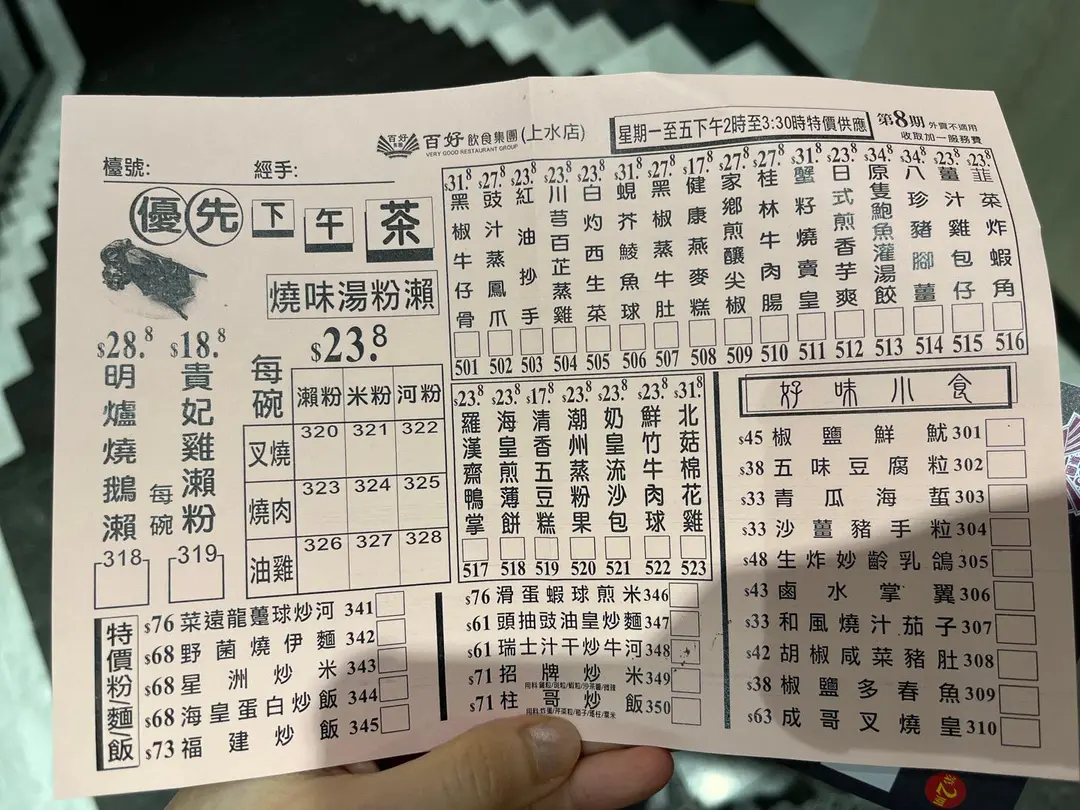 百好 飲食集團 (上水店)
VERY GOOD RESTAURANT GROUP
星期一至五下午2時至3:30時特價供應
第8期 外賣不適用
收取加一服務費
檯號:
經手:
優先 下午茶
燒味湯粉瀨
$28.8 明爐燒鵝瀨 318
$18.8 貴妃雞瀨粉 每碗 319
每碗 $23.8
瀨粉 米粉 河粉
叉燒 320 321 322
燒肉 323 324 325
油雞 326 327 328
$31.8 黑椒牛仔骨 501
$27.8 豉汁蒸鳳爪 502
$23.8 紅油抄手 503
$23.8 川芎白芷蒸雞 504
$23.8 白灼西生菜 505
$31.8 蜆芥鯪魚球 506
$27.8 黑椒蒸牛肚 507
$17.8 健康燕麥糕 508
$27.8 家鄉煎釀尖椒 509
$27.8 桂林牛肉腸 510
$31.8 蟹籽燒賣皇 511
$23.8 日式煎香芋爽 512
$34.8 原隻鮑魚灌湯餃 513
$34.8 八珍豬腳薑 514
$23.8 薑汁雞包仔 515
$23.8 韮菜炸蝦角 516
$23.8 羅漢齋鴨掌 517
$23.8 海皇煎薄餅 518
$17.8 清香五豆糕 519
$23.8 潮州蒸粉果 520
$23.8 奶皇流沙包 521
$23.8 鮮竹牛肉球 522
$31.8 北菇棉花雞 523
好味小食
$45 椒鹽鮮魷 301
$38 五味豆腐粒 302
$33 青瓜海蜇 303
$33 沙薑豬手粒 304
$48 生炸妙齡乳鴿 305
$43 鹵水掌翼 306
$33 和風燒汁茄子 307
$42 胡椒咸菜豬肚 308
$38 椒鹽多春魚 309
$63 成哥叉燒皇 310
特價粉/麵/飯
$76 菜遠龍躉球炒河 341
$68 野菌燒伊麵 342
$68 星洲炒米 343
$68 海皇蛋白炒飯 344
$73 福建炒飯 345
$76 滑蛋蝦球煎米 346
$61 頭抽豉油皇炒麵 347
$61 瑞士汁干炒牛河 348
$71 招牌炒米 349
$71 柱哥炒飯 350
第2期